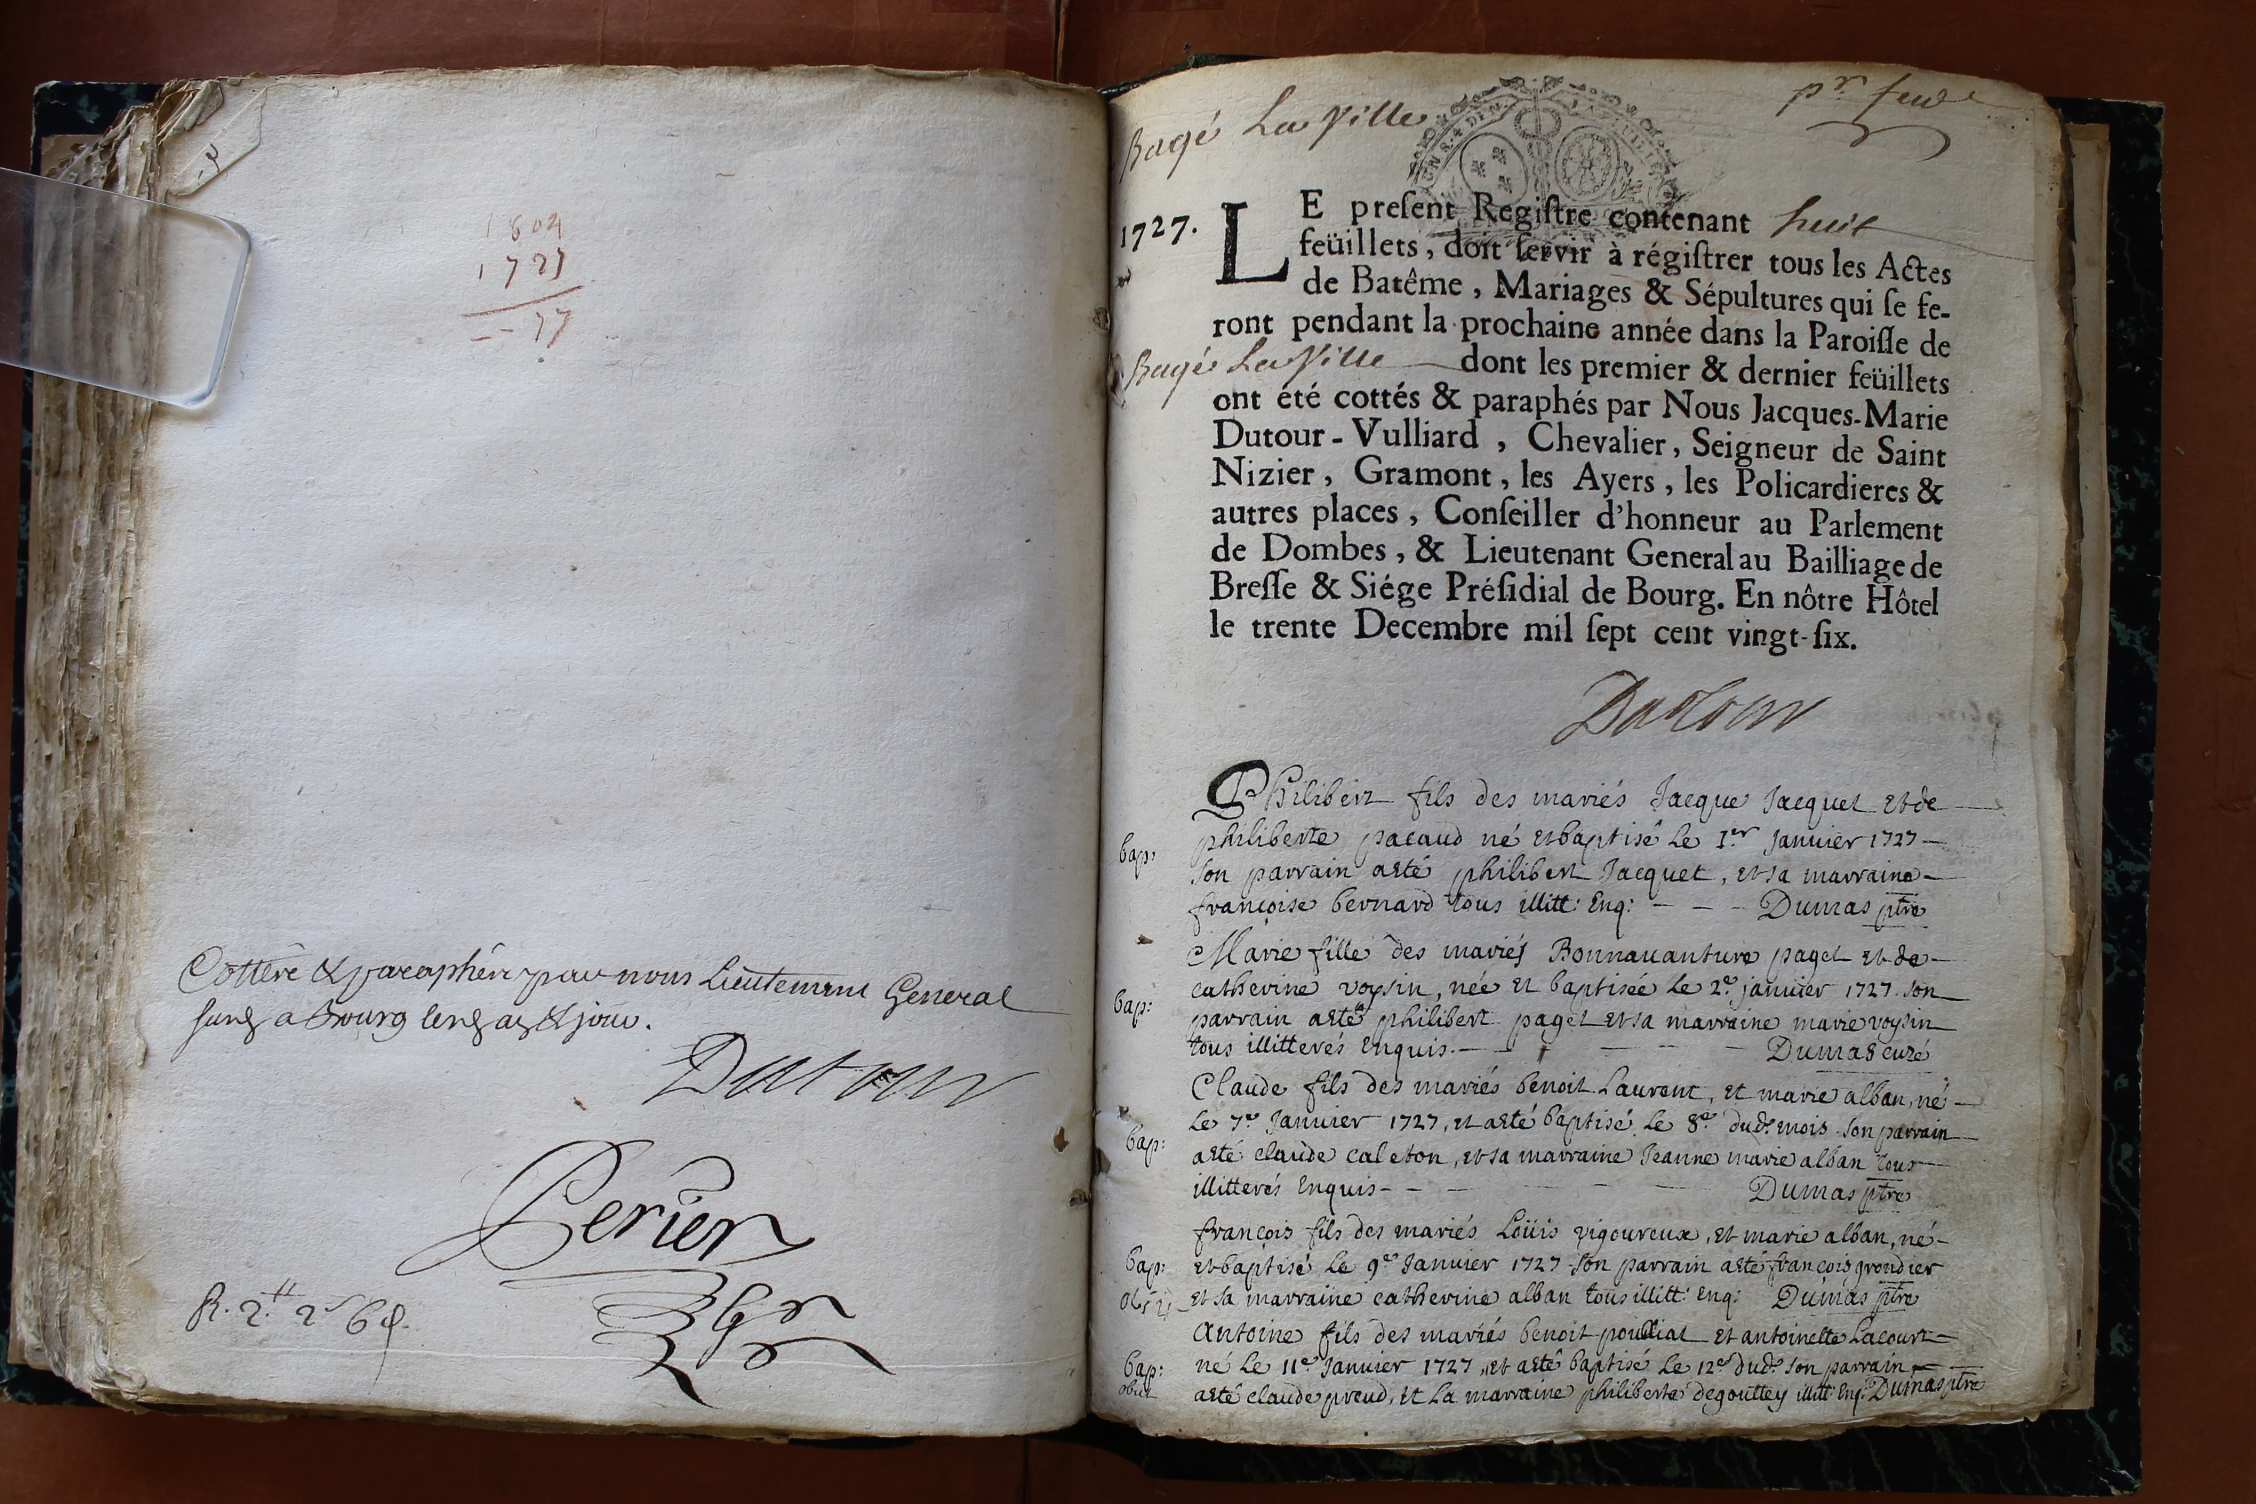 1727
Cotteré & parapheré par nous Lieutenant General
a Bourg
Dutour
Perier
R. 2.
Bagé La Ville
pr. feuil
GN 8. 4 DEN.
1727.
LE preſent Regiſtre contenant huit
feüillets, doit ſervir à régiſtrer tous les Actes
de Batême, Mariages & Sépultures qui ſe fe-
ront pendant la prochaine année dans la Paroiſſe de
Bagé La Ville dont les premier & dernier feüillets
ont été cottés & paraphés par Nous Jacques-Marie
Dutour-Vulliard, Chevalier, Seigneur de Saint
Nizier, Gramont, les Ayers, les Policardieres &
autres places, Conſeiller d'honneur au Parlement
de Dombes, & Lieutenant General au Bailliage de
Breſſe & Siége Préſidial de Bourg. En nôtre Hôtel
le trente Decembre mil ſept cent vingt-ſix.
Dutour
Philibert fils des mariés Jacque Jacquet et de
bap: philiberte pacaud né et baptisé le 1er Janvier 1727
son parrain a eté philibert Jacquet, et sa marraine
françoise bernard tous illitt: Enq: - - - Dumas ptre
Marie fille des mariés Bonnavanture paget et de
bap: catherine voysin, née et baptisée le 2e janvier 1727 son
parrain a eté philibert paget et sa marraine marie voysin
tous illitterés Enquis. - - - - Dumas curé
Claude fils des mariés benoit Laurent, et marie alban, né
le 7e Janvier 1727, et a eté baptisé le 8e dud. mois son parrain
bap: a eté claude caleton, et sa marraine Jeanne marie alban tous
illitterés Enquis - - - - Dumas ptre
françois fils des mariés Loüis vigoureux, et marie alban, né
bap: et baptisé le 9e Janvier 1727 son parrain a eté françois grondier
et sa marraine catherine alban tous illitt: enq: Dumas ptre
Antoine fils des mariés benoit poulliat et antoinette Lacourt
bap: né le 11e Janvier 1727, et a eté baptisé le 12e dud. son parrain
obiit a eté claude preud, et la marraine philiberte degouttey illitt: Enq: Dumas ptre